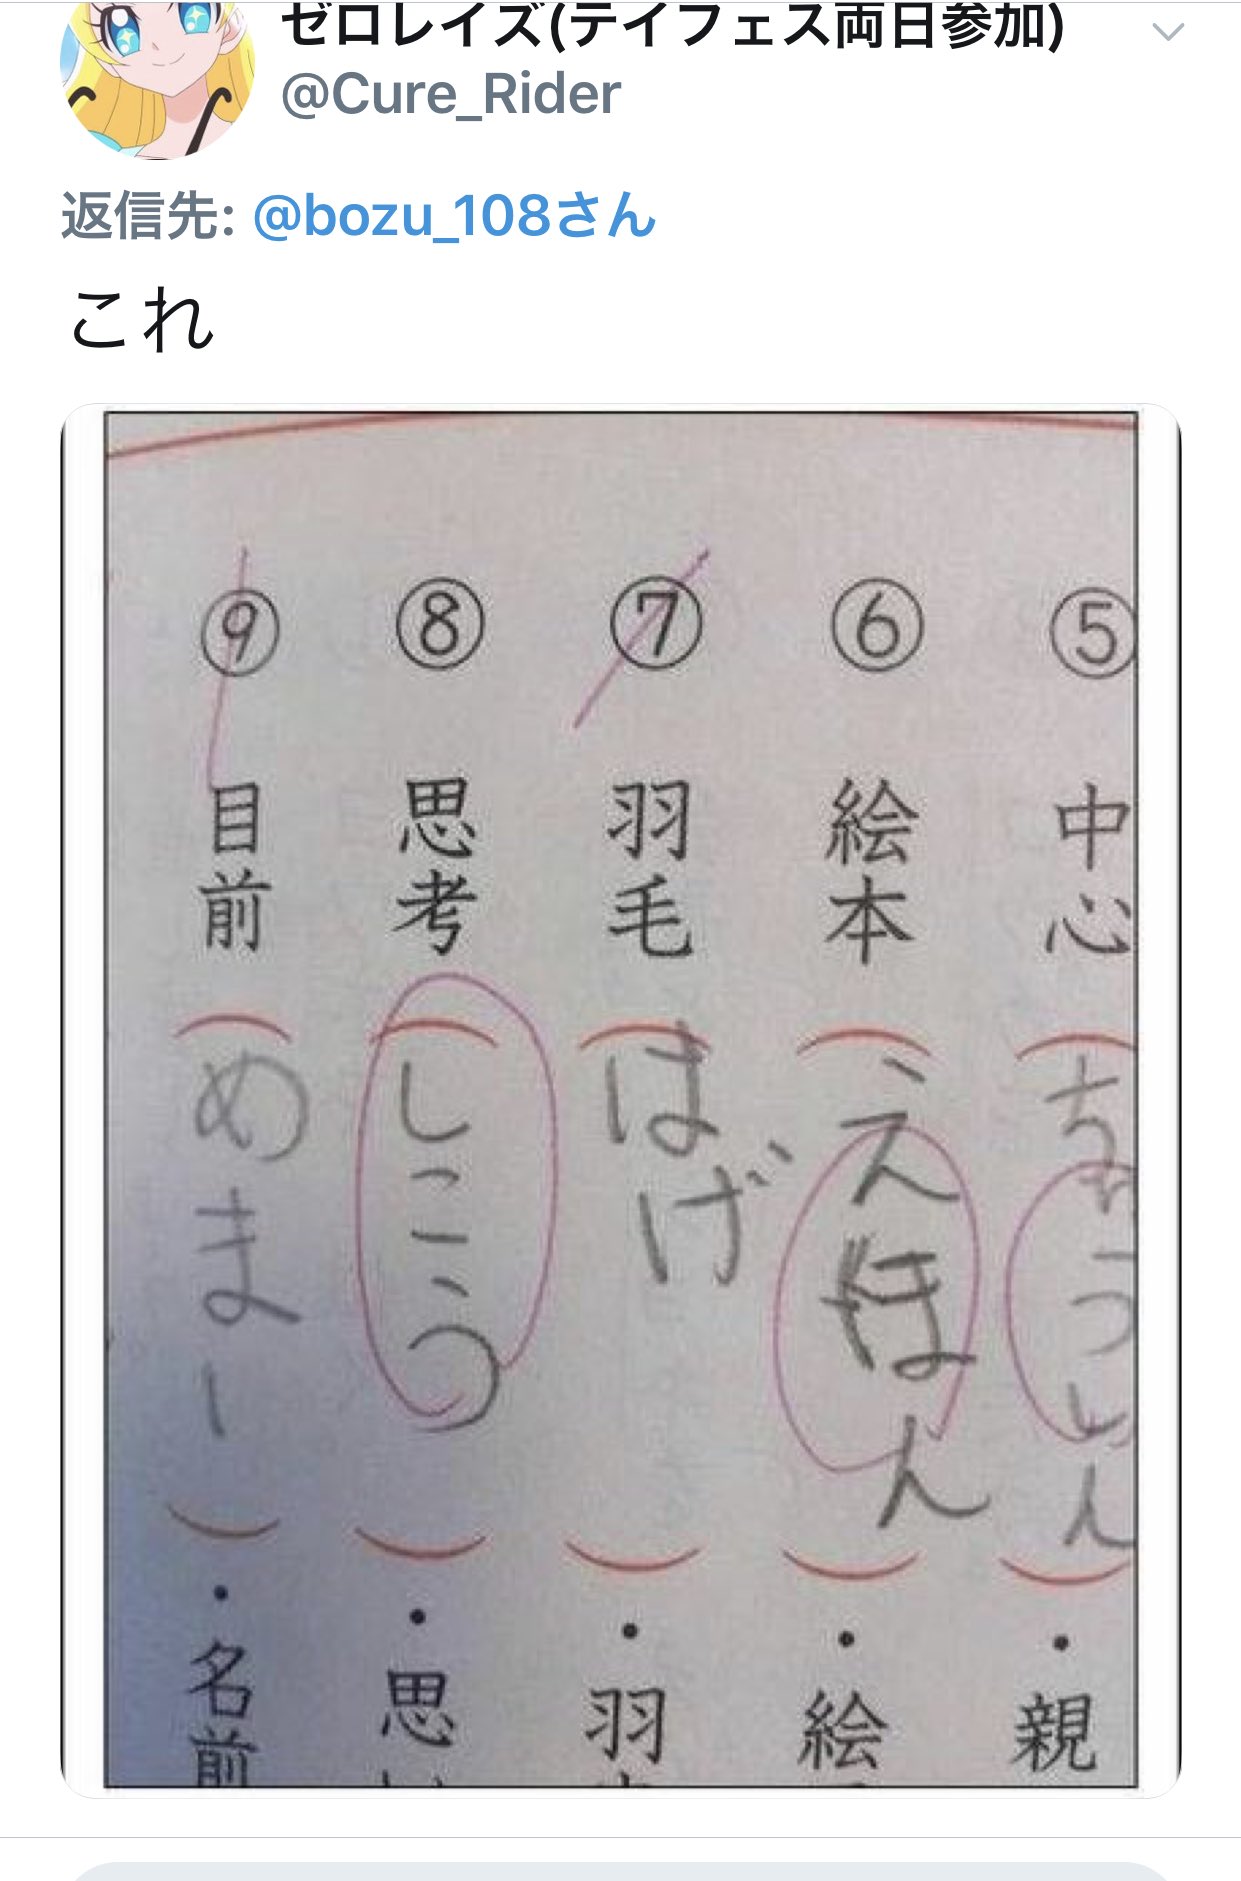 ゼロレイズ(テイフェス両日参加)
@Cure_Rider
返信先: @bozu_108さん
これ
⑤ 中心 (ちゅうしん) ・親
⑥ 絵本 (えほん) ・絵
⑦ 羽毛 (はげ) ・羽
⑧ 思考 (しこう) ・思
⑨ 目前 (めまー) ・名前